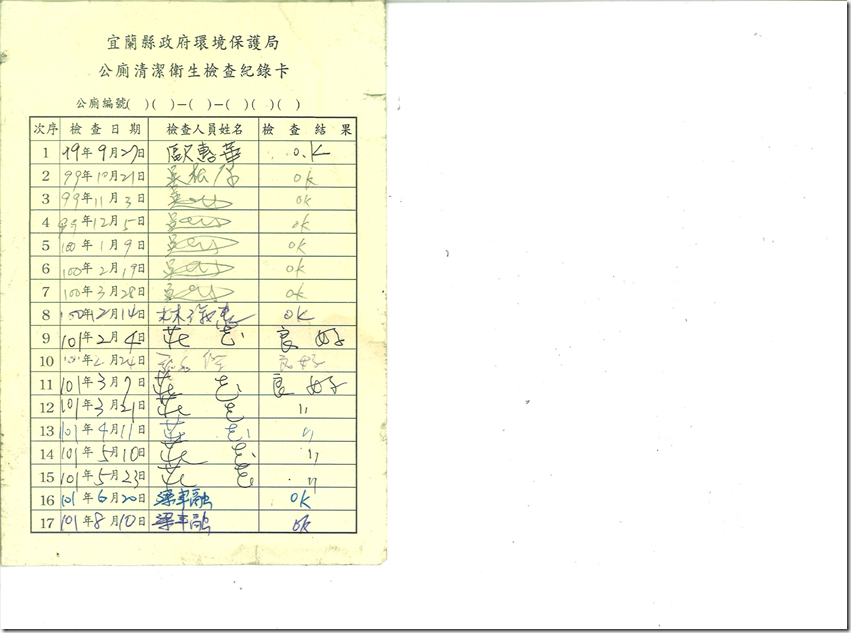 宜蘭縣政府環境保護局
公廁清潔衛生檢查紀錄卡
公廁編號( )( )－( )－( )( )( )
次序 檢查日期 檢查人員姓名 檢查結果
1 99年9月27日 歐惠華 O.K
2 99年10月21日 吳 ok
3 99年11月3日 ok
4 99年12月5日 ok
5 100年1月9日 ok
6 100年2月19日 ok
7 100年3月28日 ok
8 100年12月14日 林 OK
9 101年2月4日 莊 良好
10 101年2月24日 良好
11 101年3月7日 莊 良好
12 101年3月21日 莊 〃
13 101年4月11日 莊 〃
14 101年5月10日 莊 〃
15 101年5月23日 莊 〃
16 101年6月20日 梁聿融 OK
17 101年8月10日 梁聿融 OK